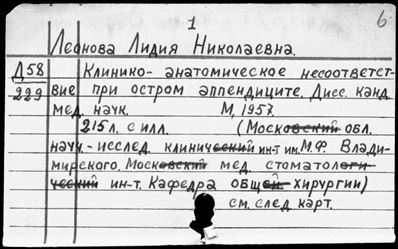 1 6
Леонова Лидия Николаевна.
Д58 Клинико- анатомическое несоответст-
229 вие при остром аппендиците. Дисс. канд.
мед. наук. М, 1957.
215 л. с илл. (Московский обл.
научн.-исслед. клинический ин-т им. М.Ф. Влади-
мирского. Московский мед. стоматологи-
ческий ин-т. Кафедра общей хирургии)
см. след. карт.